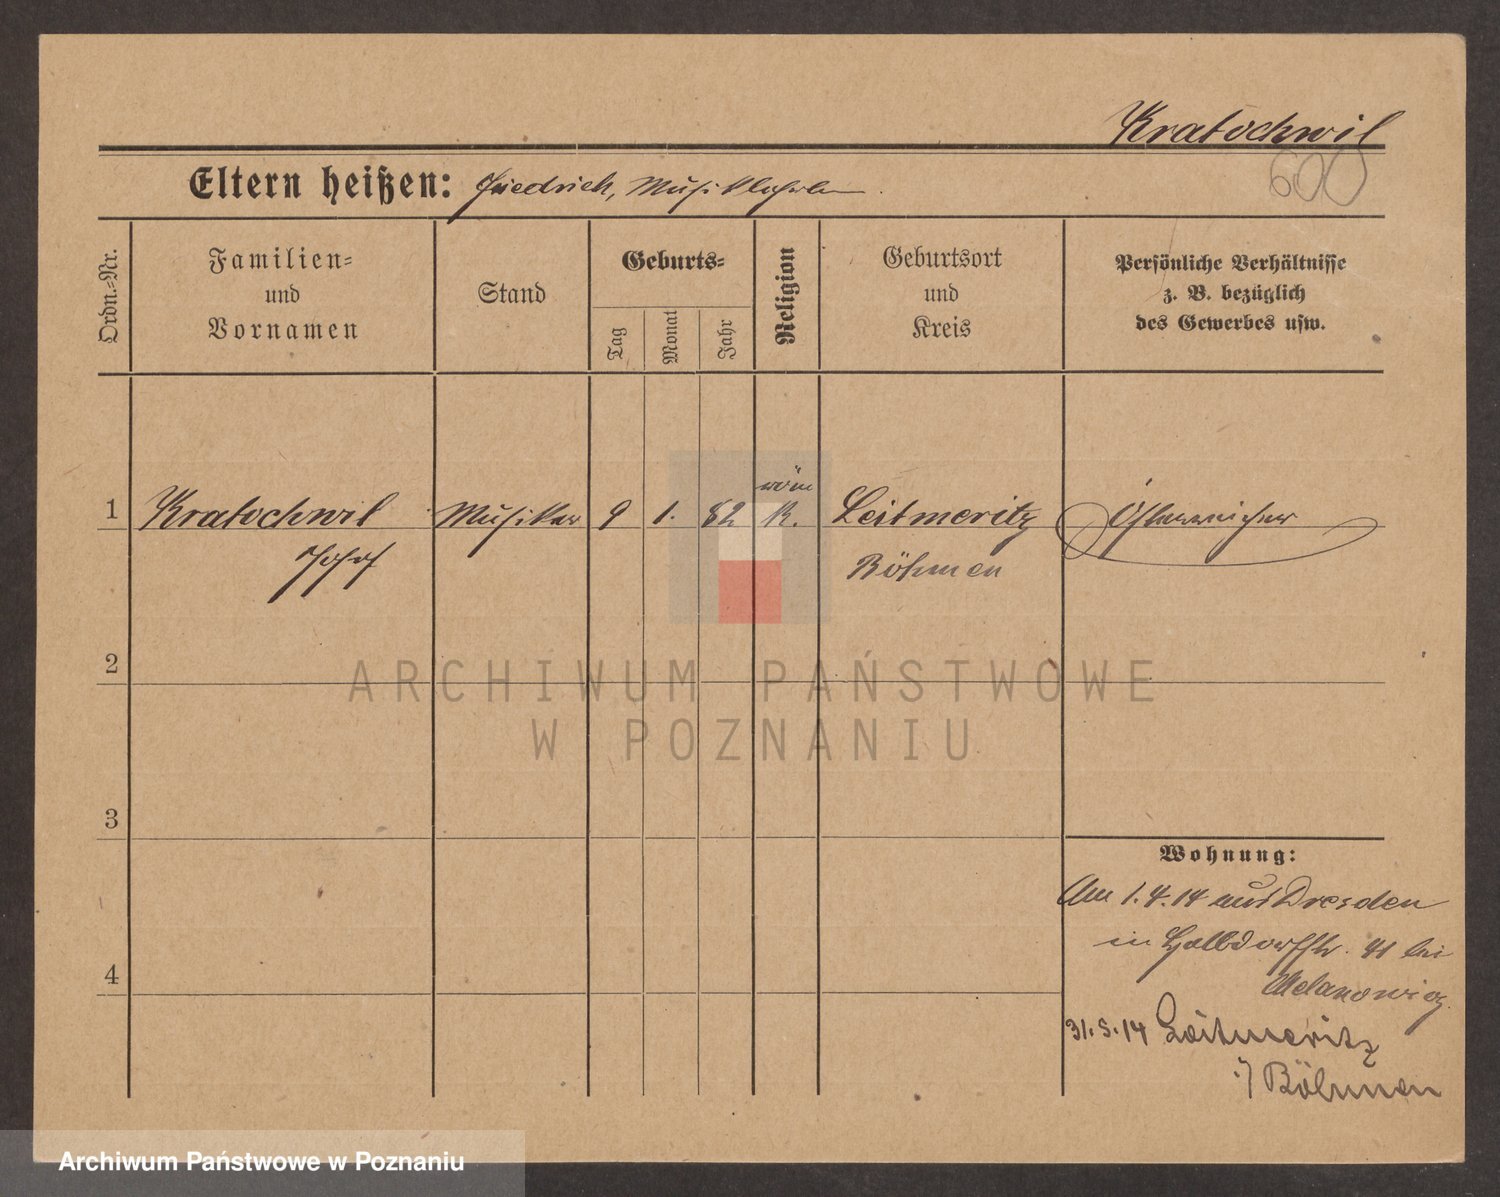 Kratochwil
600
Eltern heißen: Friedrich, Musiklehrer
Ordn.-Nr.
Familien-
und
Vornamen
Stand
Geburts-
Tag
Monat
Jahr
Religion
Geburtsort
und
Kreis
Persönliche Verhältnisse
z. B. bezüglich
des Gewerbes usw.
1 Kratochwil Musiker 9 1. 82 röm K. Leitmeritz Österreicher
Josef Böhmen
2
ARCHIWUM PAŃSTWOWE
W POZNANIU
3
Wohnung:
Am 1.4.14 aus Dresden
in Halbdorfstr. 41 bei
4
31.5.14 Leitmeritz
i/ Böhmen
Archiwum Państwowe w Poznaniu